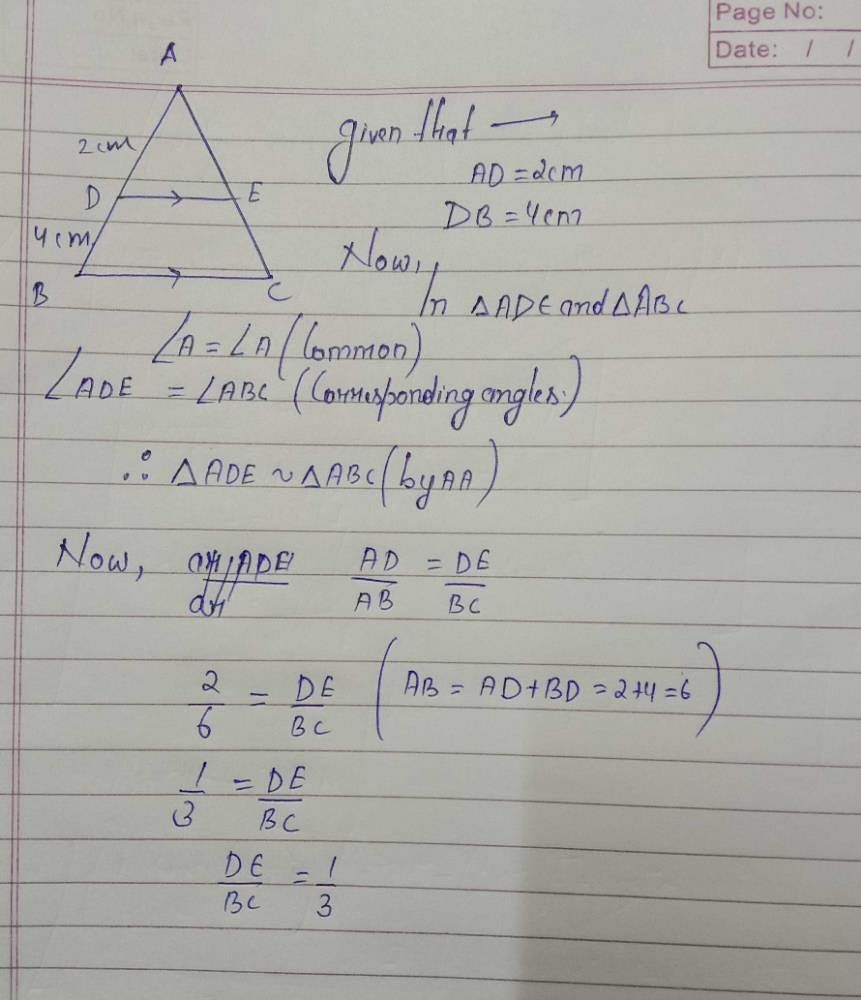 Page No:
Date: / /
A
2cm
D
E
4cm
B
C
given that →
AD = 2cm
DB = 4cm
Now,
In △ADE and △ABC
∠A = ∠A (Common)
∠ADE = ∠ABC (Corresponding angles.)
∴ △ADE ~ △ABC (by AA)
Now, AD/AB = DE/BC
2/6 = DE/BC (AB = AD+BD = 2+4 = 6)
1/3 = DE/BC
DE/BC = 1/3